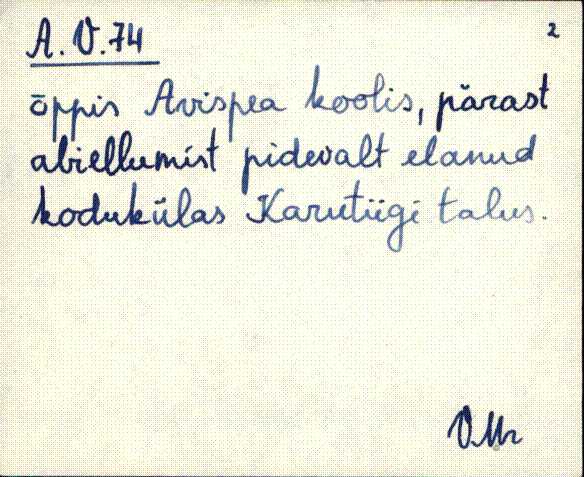 A. V. 74
2
õppis Avispea koolis, pärast
abiellumist pidevalt elanud
kodukülas Karutiigi talus.
VMr